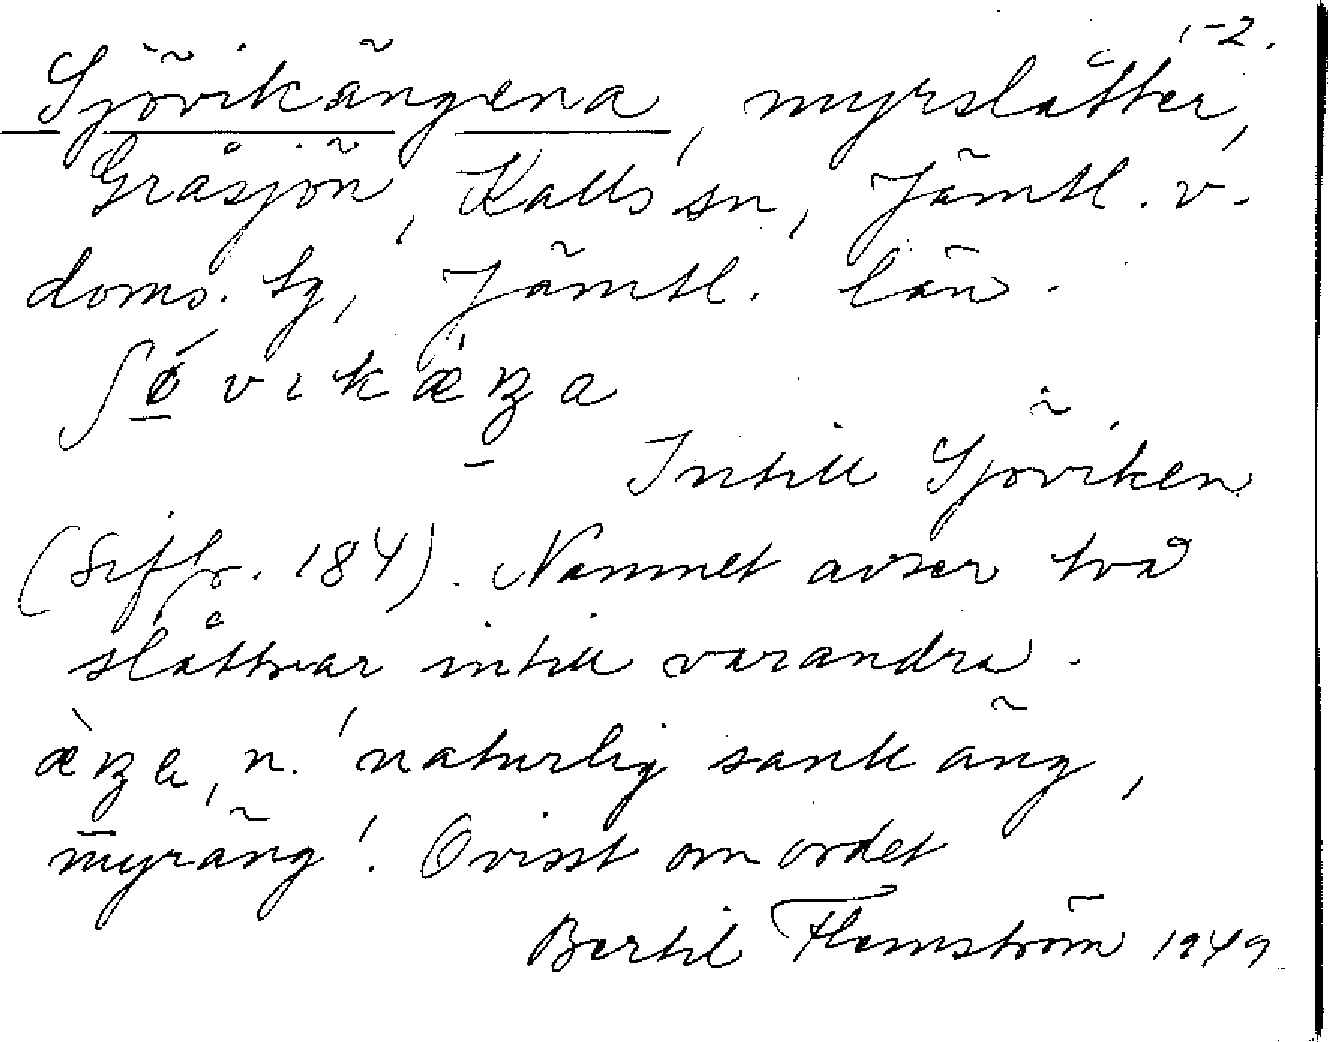 1-2.
Sjövikängena, myrslåtter,
Gråsjön, Kalls sn, Jämtl. v.
doms. tg, Jämtl. län.
ʃǿvıkæ̀ŋa
Intill Sjöviken
(Siffr. 184). Namnet avser två
slåttrar intill varandra.
æ̀ŋa, n. 'naturlig sank äng,
myräng'. Ovisst om ordet
Bertil Flemström 1949